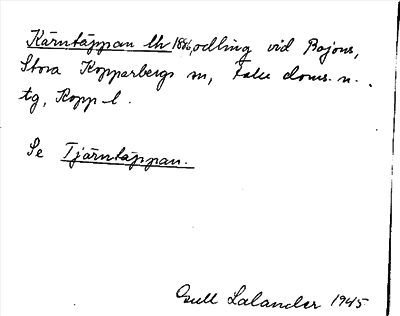 Kärntäppan lh 1886, odling vid Bojons,
Stora Kopparbergs sn, Falu doms. n.
tg, Kopp l.
Se Tjärntäppan.
Gull Lalander 1945